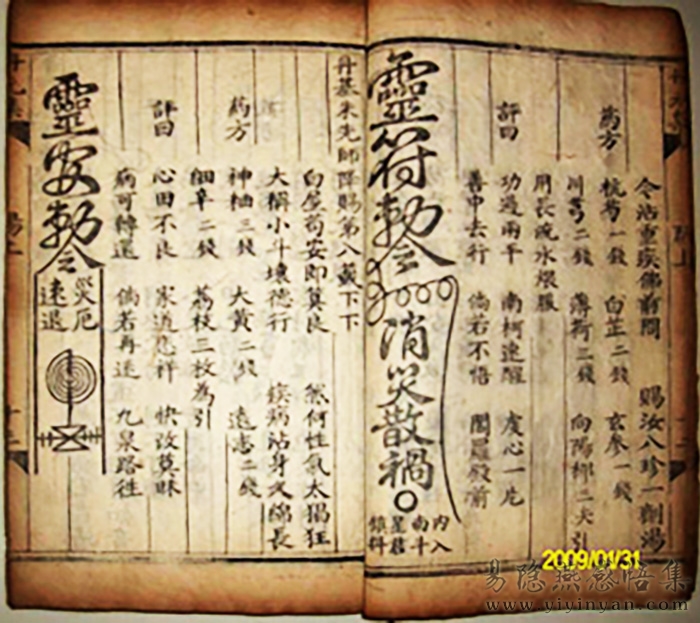 令沾重疾佛前問 賜汝八珍一劑湯
药方
杭芍一錢 白芷二錢 玄參一錢
川芎二錢 薄荷三錢 向陽柳二大引
用長流水煨服
評曰
功過兩平 南柯速醒 虔心一片
善中去行 倘若不悟 閻羅殿前
靈符勅令 消災散禍
內入
南斗
星君
鎮
朱先師降賜第八籤下下
白屋苟安即算良 然何性氣太猖狂
大稱小斗壞德行 疾病沾身又綿長
药方
神柚三錢 大黃二錢 遠志二錢
細辛二錢 荔枝三枚為引
評曰
心田不良 家道 祥 快改莫昧
病可轉還 倘若再迷 九泉路往
靈安勅令
災厄
速退
2009/01/31
易隐燕感悟集
www.yiyinyan.com